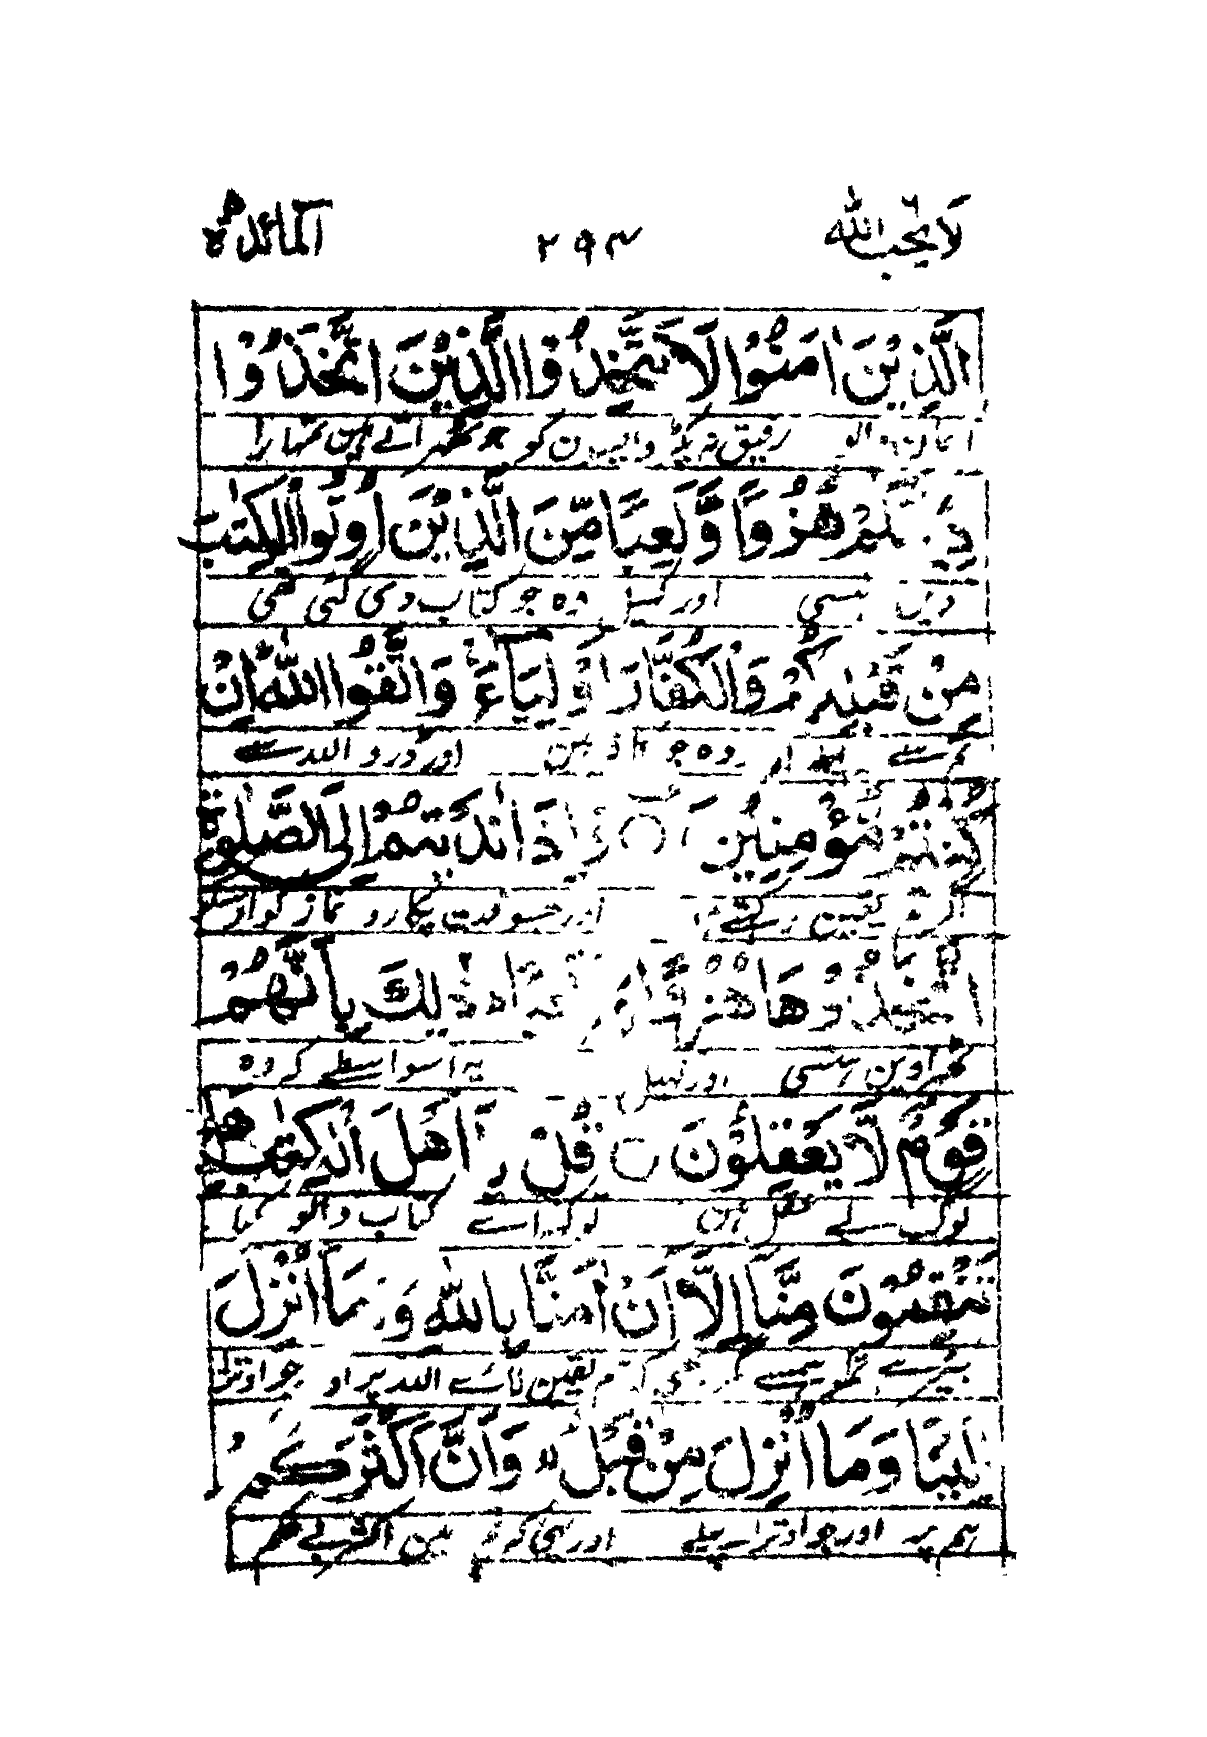 لا یحب الله ٦ ٢٩٣ المائدة ٥
الَّذِيْنَ اٰمَنُوْا لَا تَتَّخِذُوا الَّذِيْنَ اتَّخَذُوْا
رفیق نہ پکڑو اون کو جو ٹھہراتے ہین تمہارا
دِيْنَكُمْ هُزُوًا وَّلَعِبًا مِّنَ الَّذِيْنَ اُوْتُوا الْكِتٰبَ
دین ہنسی اور کھیل وہ جو کتاب دی گئی تھی
مِنْ قَبْلِكُمْ وَالْكُفَّارَ اَوْلِيَآءَ وَاتَّقُوا اللّٰهَ اِنْ
تمسے پہلے اور وہ جو ہین اور ڈرو اللہ سے
كُنْتُمْ مُّؤْمِنِيْنَ وَاِذَا نَادَيْتُمْ اِلَى الصَّلٰوةِ
اگر تم یقین رکھتے اور جسوقت پکارو نماز کو اوسکو
اتَّخَذُوْهَا هُزُوًا وَّلَعِبًا ذٰلِكَ بِاَنَّهُمْ
ٹھہراوین ہنسی اور کھیل یہ اسواسطے کہ وہ
قَوْمٌ لَّا يَعْقِلُوْنَ قُلْ يٰٓاَهْلَ الْكِتٰبِ هَلْ
لوگ بے عقل ہین تو کہہ اے کتاب والو کیا
تَنْقِمُوْنَ مِنَّآ اِلَّآ اَنْ اٰمَنَّا بِاللّٰهِ وَمَآ اُنْزِلَ
بیر ہے تمکو ہمسے مگر یہی کہ ہم یقین لائے اللہ پر اور جو اوترا
اِلَيْنَا وَمَآ اُنْزِلَ مِنْ قَبْلُ وَاَنَّ اَكْثَرَكُمْ
ہم پر اور جو اوترا پہلے اور یہی کہ تم مین اکثر بے حکم